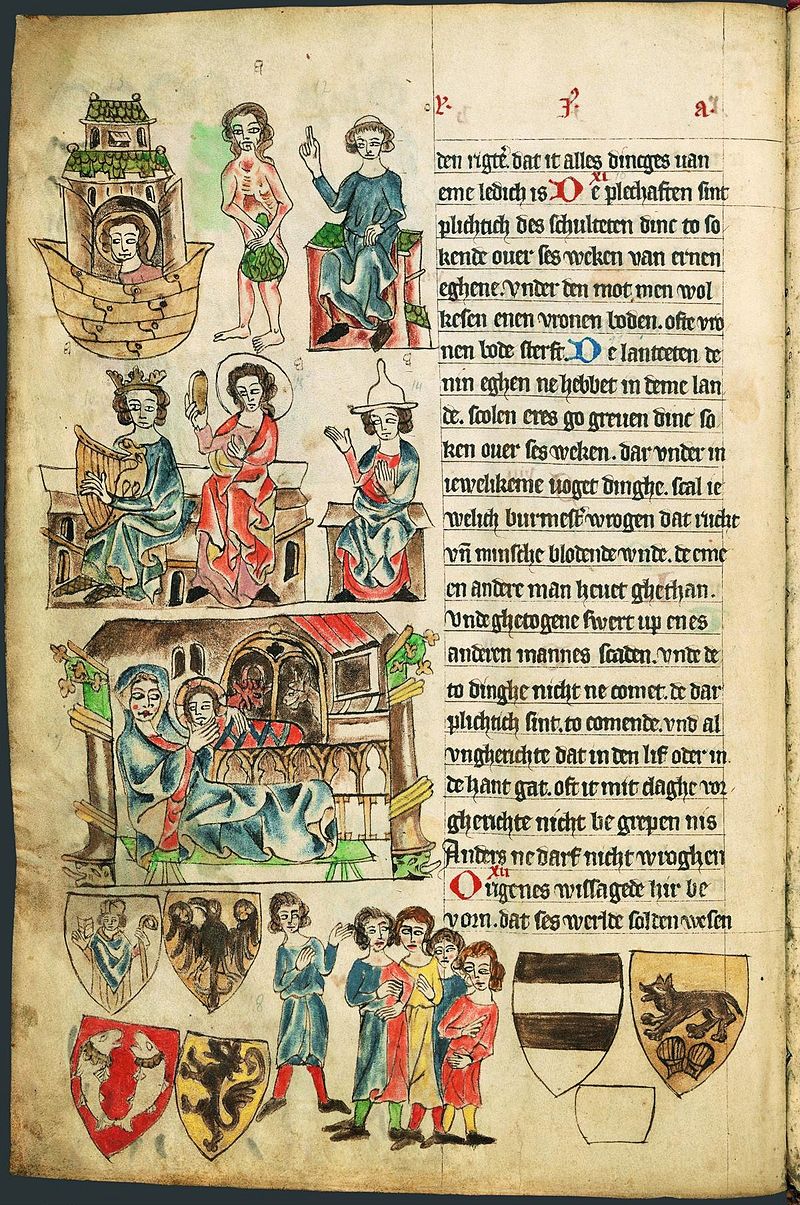 den rigtē. dat it alles dincges uan
eme ledich is D e plechaften sint
xi
plichtich des schulteten dinc to so
kende ouer ses weken van ernen
eghene. vnder den mot men wol
kesen enen vronen boden. ofte vro
nen bode sterft. D e lantceten de
nin eghen ne hebbet in deme lan
de. scolen eres go greuen dinc so
ken ouer ses weken. dar vnder in
iewelikeme uoget dinghe. scal ie
welich burmest wrogen dat rucht
vn̄ minsche blodende wnde. de eme
en andere man heuet ghethan.
vnde ghetogene swert up enes
anderen mannes scaden. vnde de
to dinghe nicht ne comet. de dar
plichtich sint. to comende. vnd al
vngherichte dat in den lif oder in
de hant gat. oft it mit claghe vor
gherichte nicht be grepen nis
Anders ne darf nicht wroghen
xii
Origenes wissagede hir be
vorn. dat ses werlde solden wesen